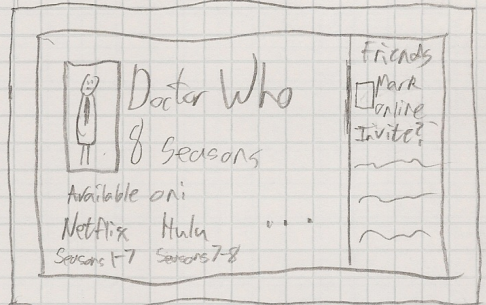 Doctor Who
8 Seasons
Available on:
Netflix Hulu ...
Seasons 1-7 Seasons 7-8
Friends
Mark
online
Invite?